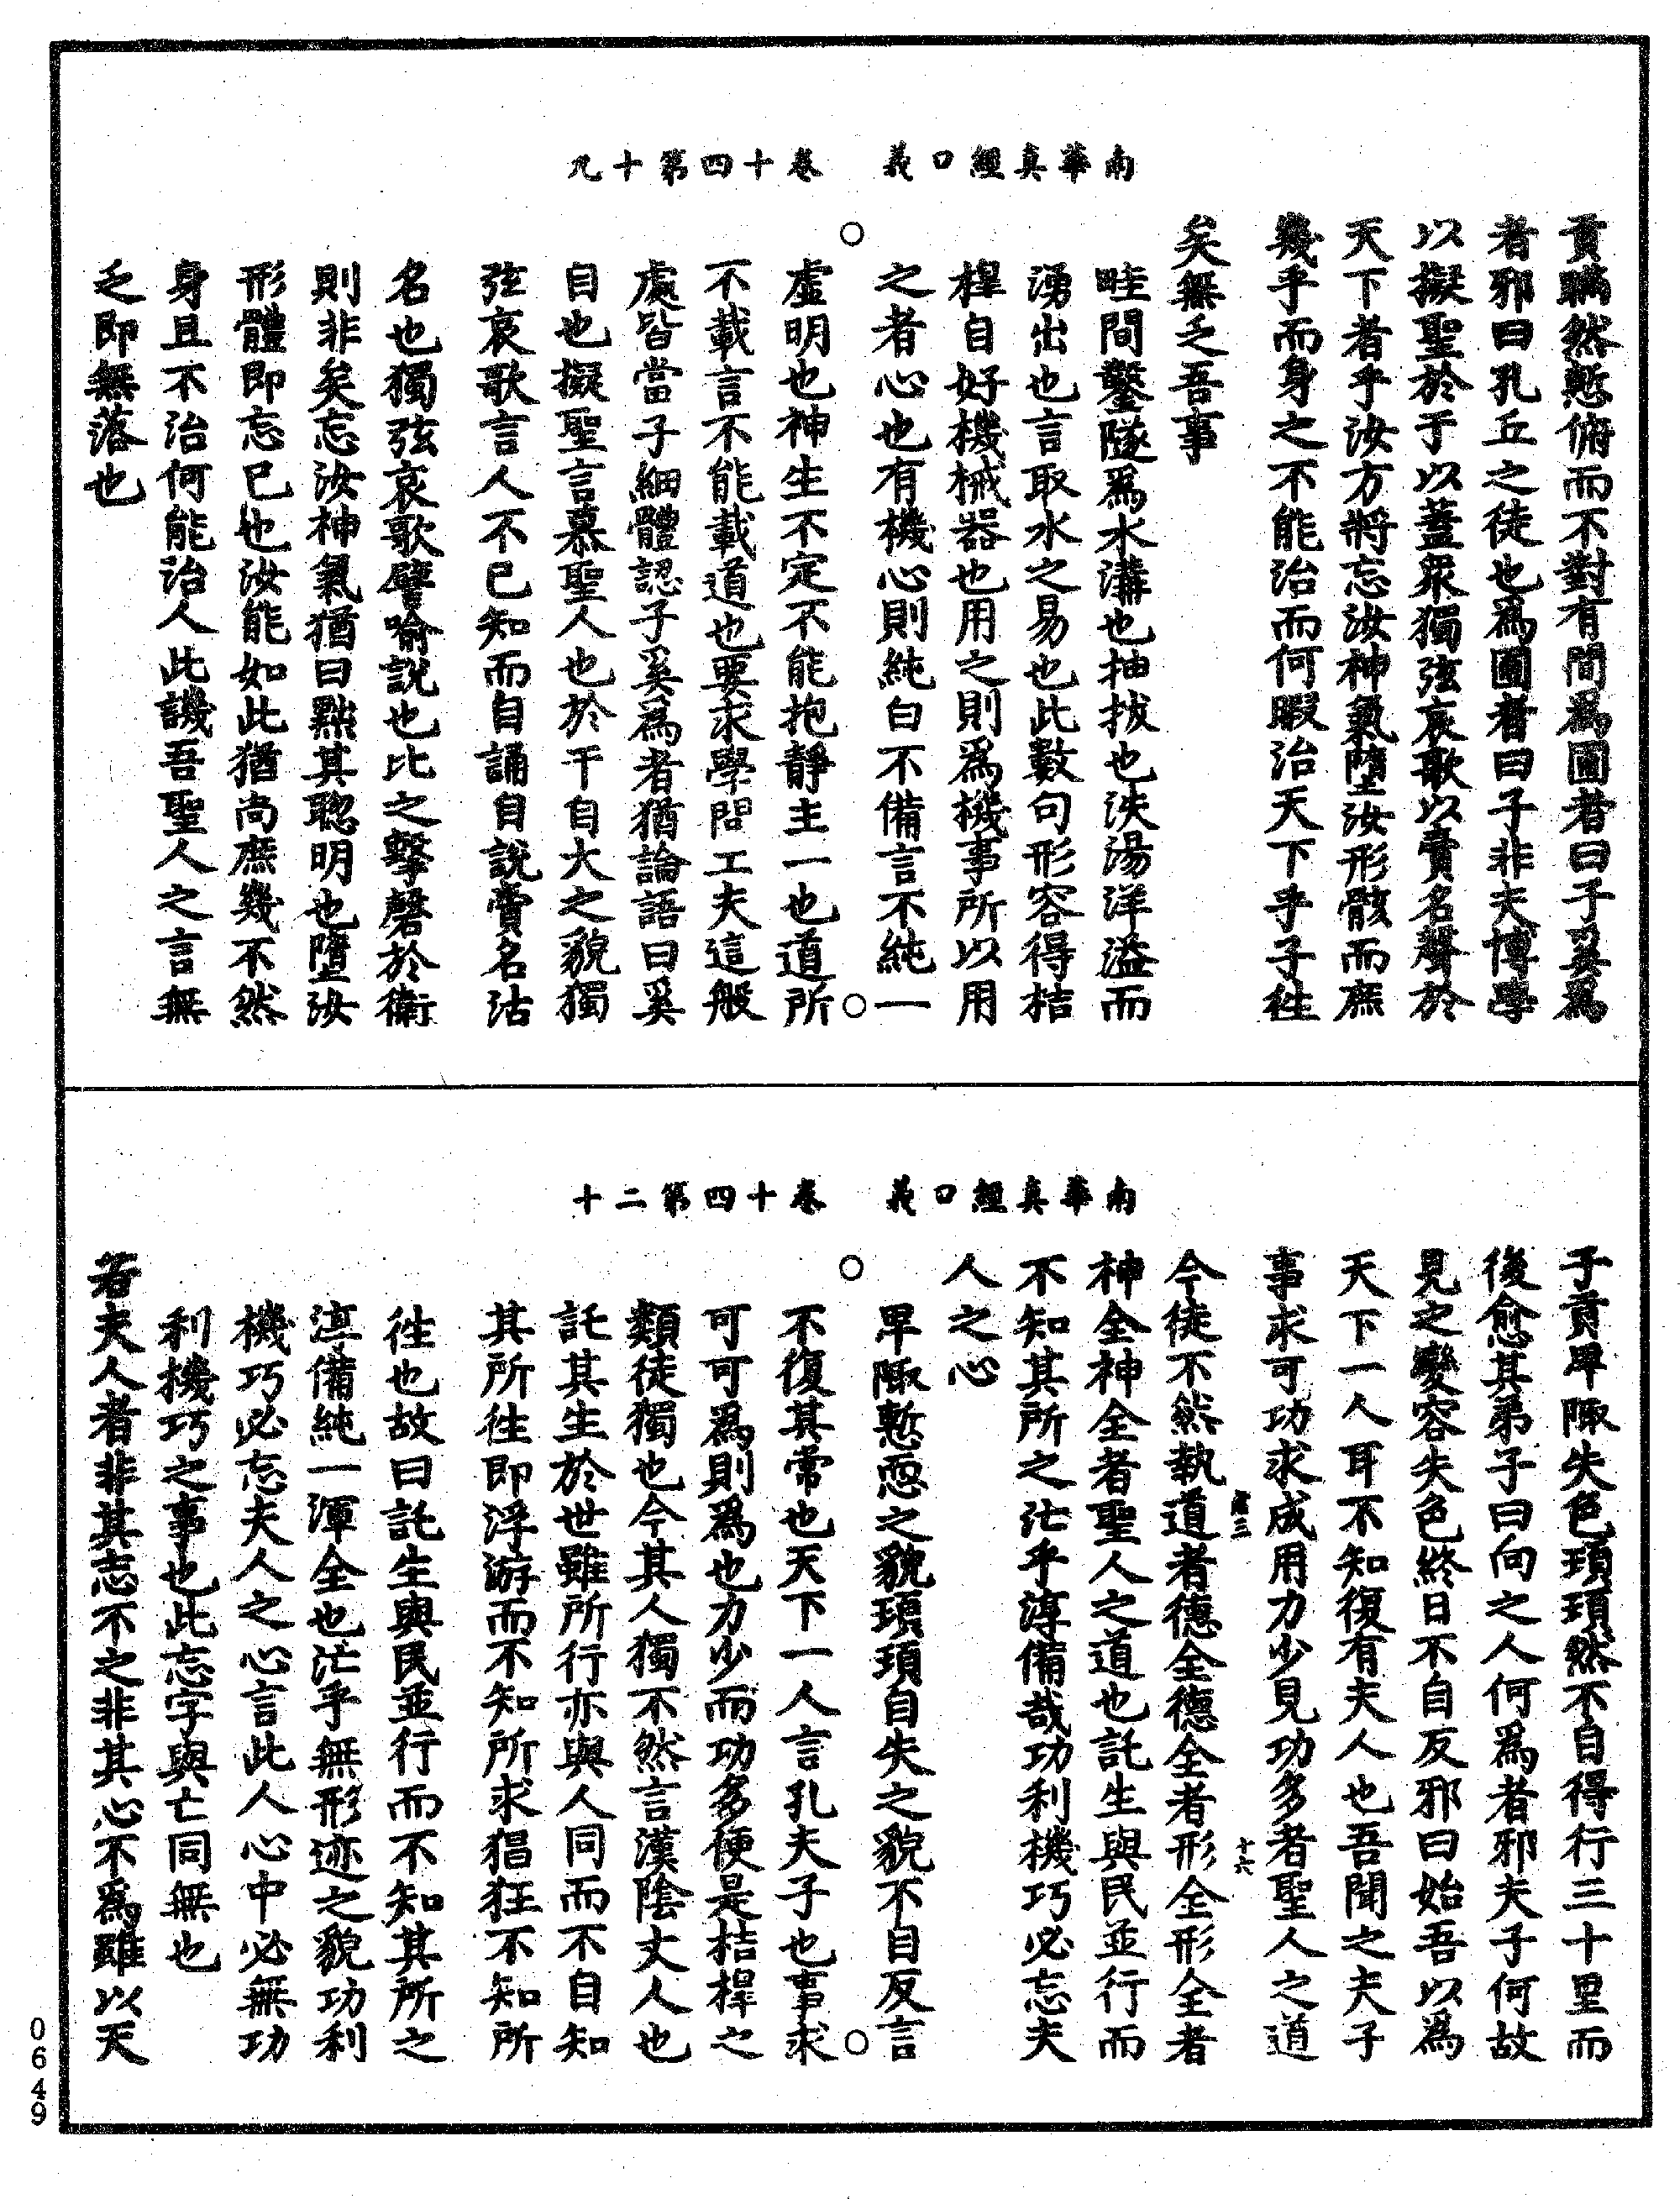 南華真經口義　卷十四第十九
貢瞞然慙俯而不對有間爲圃者曰子奚爲
者邪曰孔丘之徒也爲圃者曰子非夫博學
以擬聖於于以蓋眾獨弦哀歌以賣名聲於
天下者乎汝方將忘汝神氣墮汝形骸而庶
幾乎而身之不能治而何暇治天下乎子往
矣無乏吾事
畦間鑿隧爲水溝也抽拔也泆湯洋溢而
湧出也言取水之易也此數句形容得桔
槔自好機械器也用之則爲機事所以用
之者心也有機心則純白不備言不純一
虛明也神生不定不能抱靜主一也道所
不載言不能載道也要求學問工夫這般
處皆當子細體認子奚爲者猶論語曰奚
自也擬聖言慕聖人也於于自大之貌獨
弦哀歌言人不已知而自誦自說賣名沽
名也獨弦哀歌譬喻說也比之擊磬於衛
則非矣忘汝神氣猶曰黜其聰明也墮汝
形體即忘已也汝能如此猶尚庶幾不然
身且不治何能治人此譏吾聖人之言無
乏即無落也
南華真經口義　卷十四第二十
子貢卑陬失色頊頊然不自得行三十里而
後愈其弟子曰向之人何爲者邪夫子何故
見之變容失色終日不自反邪曰始吾以爲
天下一人耳不知復有夫人也吾聞之夫子
事求可功求成用力少見功多者聖人之道
十六
今徒不然執道者德全德全者形全形全者
神全神全者聖人之道也託生與民並行而
不知其所之汒乎淳備哉功利機巧必忘夫
人之心
卑陬慙恧之貌頊頊自失之貌不自反言
不復其常也天下一人言孔夫子也事求
可可爲則爲也力少而功多便是桔槔之
類徒獨也今其人獨不然言漢陰丈人也
託其生於世雖所行亦與人同而不自知
其所往即浮游而不知所求猖狂不知所
往也故曰託生與民並行而不知其所之
淳備純一渾全也汒乎無形迹之貌功利
機巧必忘夫人之心言此人心中必無功
利機巧之事也此忘字與亡同無也
若夫人者非其志不之非其心不爲雖以天
0649